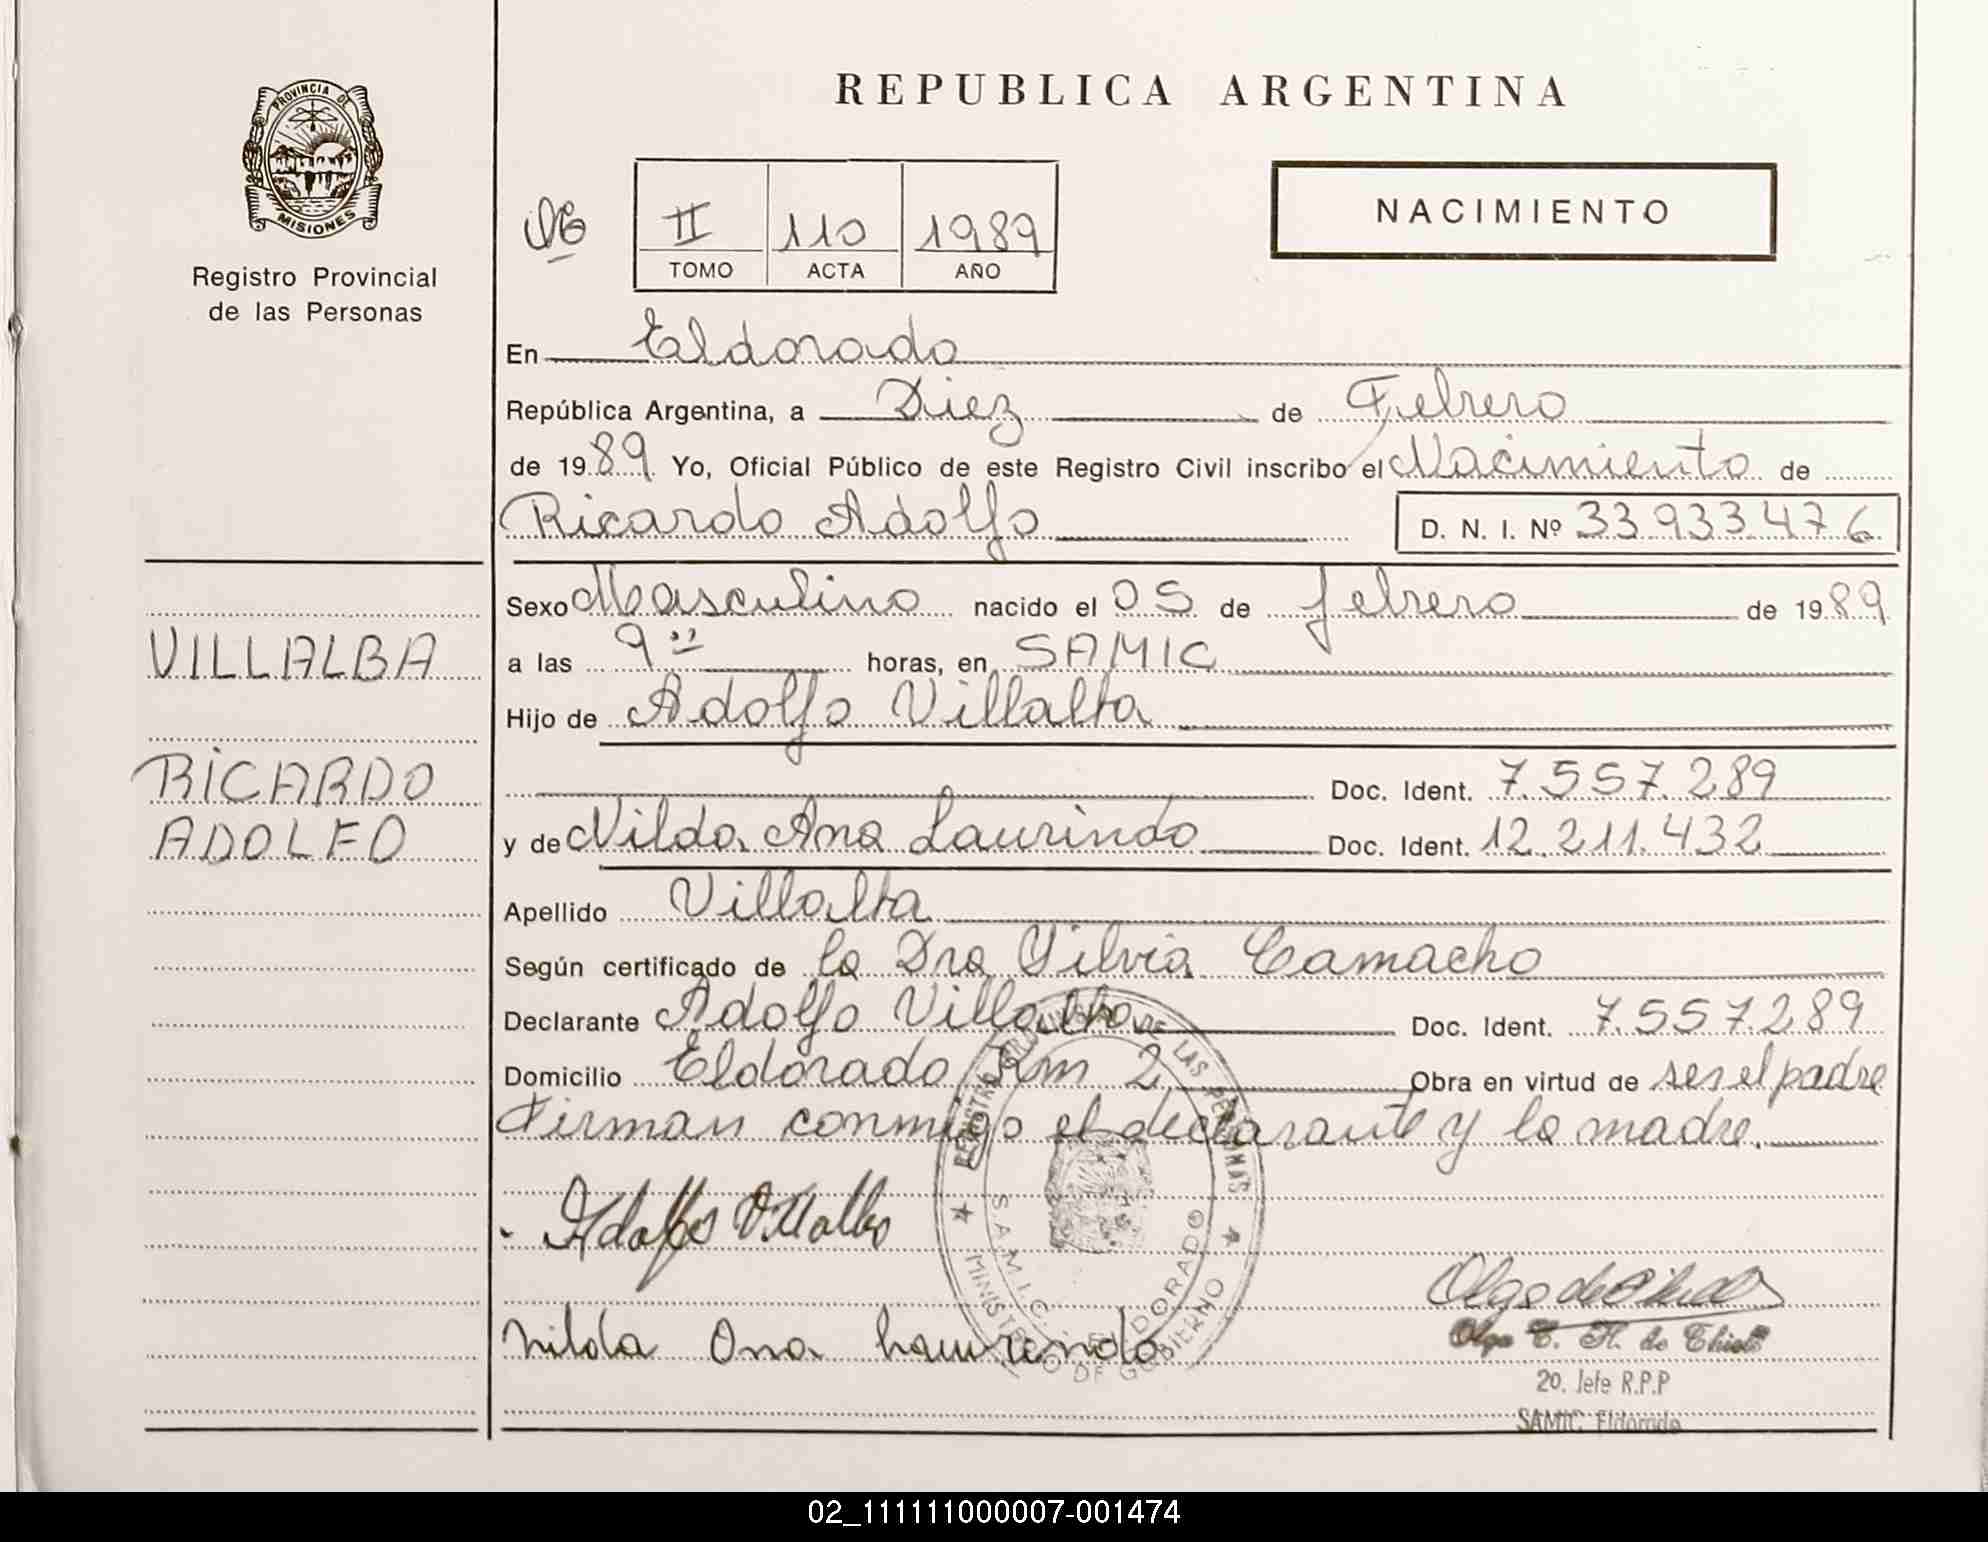 PROVINCIA DE
MISIONES
Registro Provincial
de las Personas
VILLALBA
RICARDO
ADOLFO
REPUBLICA ARGENTINA
II 110 1989
TOMO ACTA AÑO
NACIMIENTO
En Eldorado
República Argentina, a Diez de Febrero
de 1989 Yo, Oficial Público de este Registro Civil inscribo el Nacimiento de
Ricardo Adolfo D. N. I. Nº 33933476
Sexo Masculino nacido el 05 de febrero de 1989
a las 9 horas, en SAMIC
Hijo de Adolfo Villalba
Doc. Ident. 7.557.289
y de Nilda Ana Laurindo Doc. Ident. 12.211.432
Apellido Villalba
Según certificado de la Dra Silvia Camacho
Declarante Adolfo Villalba Doc. Ident. 7.557.289
Domicilio Eldorado Km 2 Obra en virtud de ser el padre
Firman conmigo el declarante y la madre.
Adolfo Villalba
nilda Ana Laurindo
REGISTRO PROVINCIAL DE LAS PERSONAS
S.A.M.I.C. ELDORADO
MINISTERIO DE GOBIERNO
Olga de
Olga T. H. de
20. Jefe R.P.P
SAMIC Eldorado
02_111111000007-001474